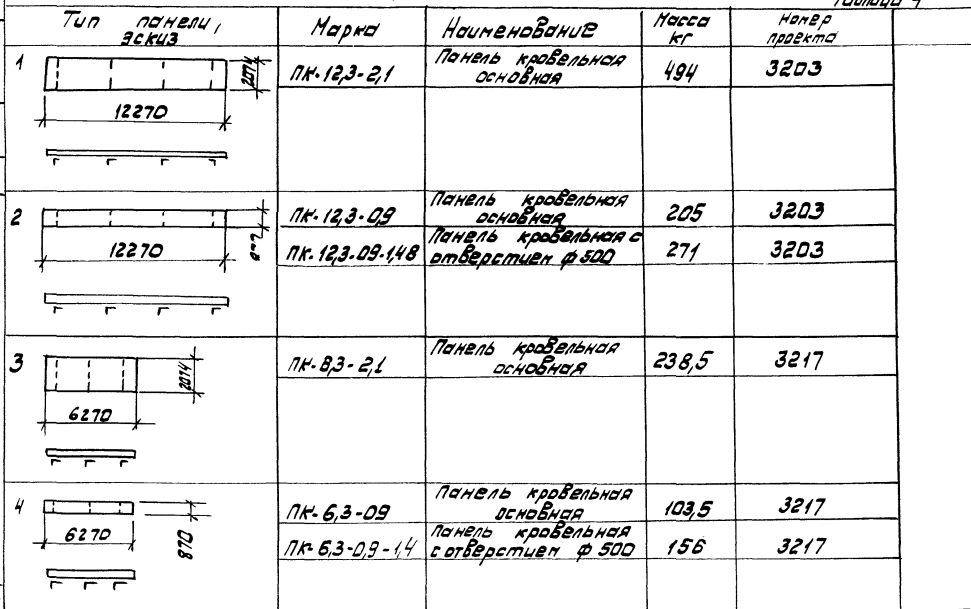 Тип панели, эскиз
Марка
Наименование
Масса кг
Номер проекта
1
2074
12270
ПК-12,3-2,1
Панель кровельная основная
494
3203
2
12270
ПК-12,3-0,9
Панель кровельная основная
205
3203
ПК-12,3-09-1,48
Панель кровельная с отверстием ф 500
271
3203
3
2074
6270
ПК-8,3-2,1
Панель кровельная основная
238,5
3217
4
6270
870
ПК-6,3-09
Панель кровельная основная
103,5
3217
ПК-6,3-0,9-1,4
Панель кровельная с отверстием ф 500
156
3217